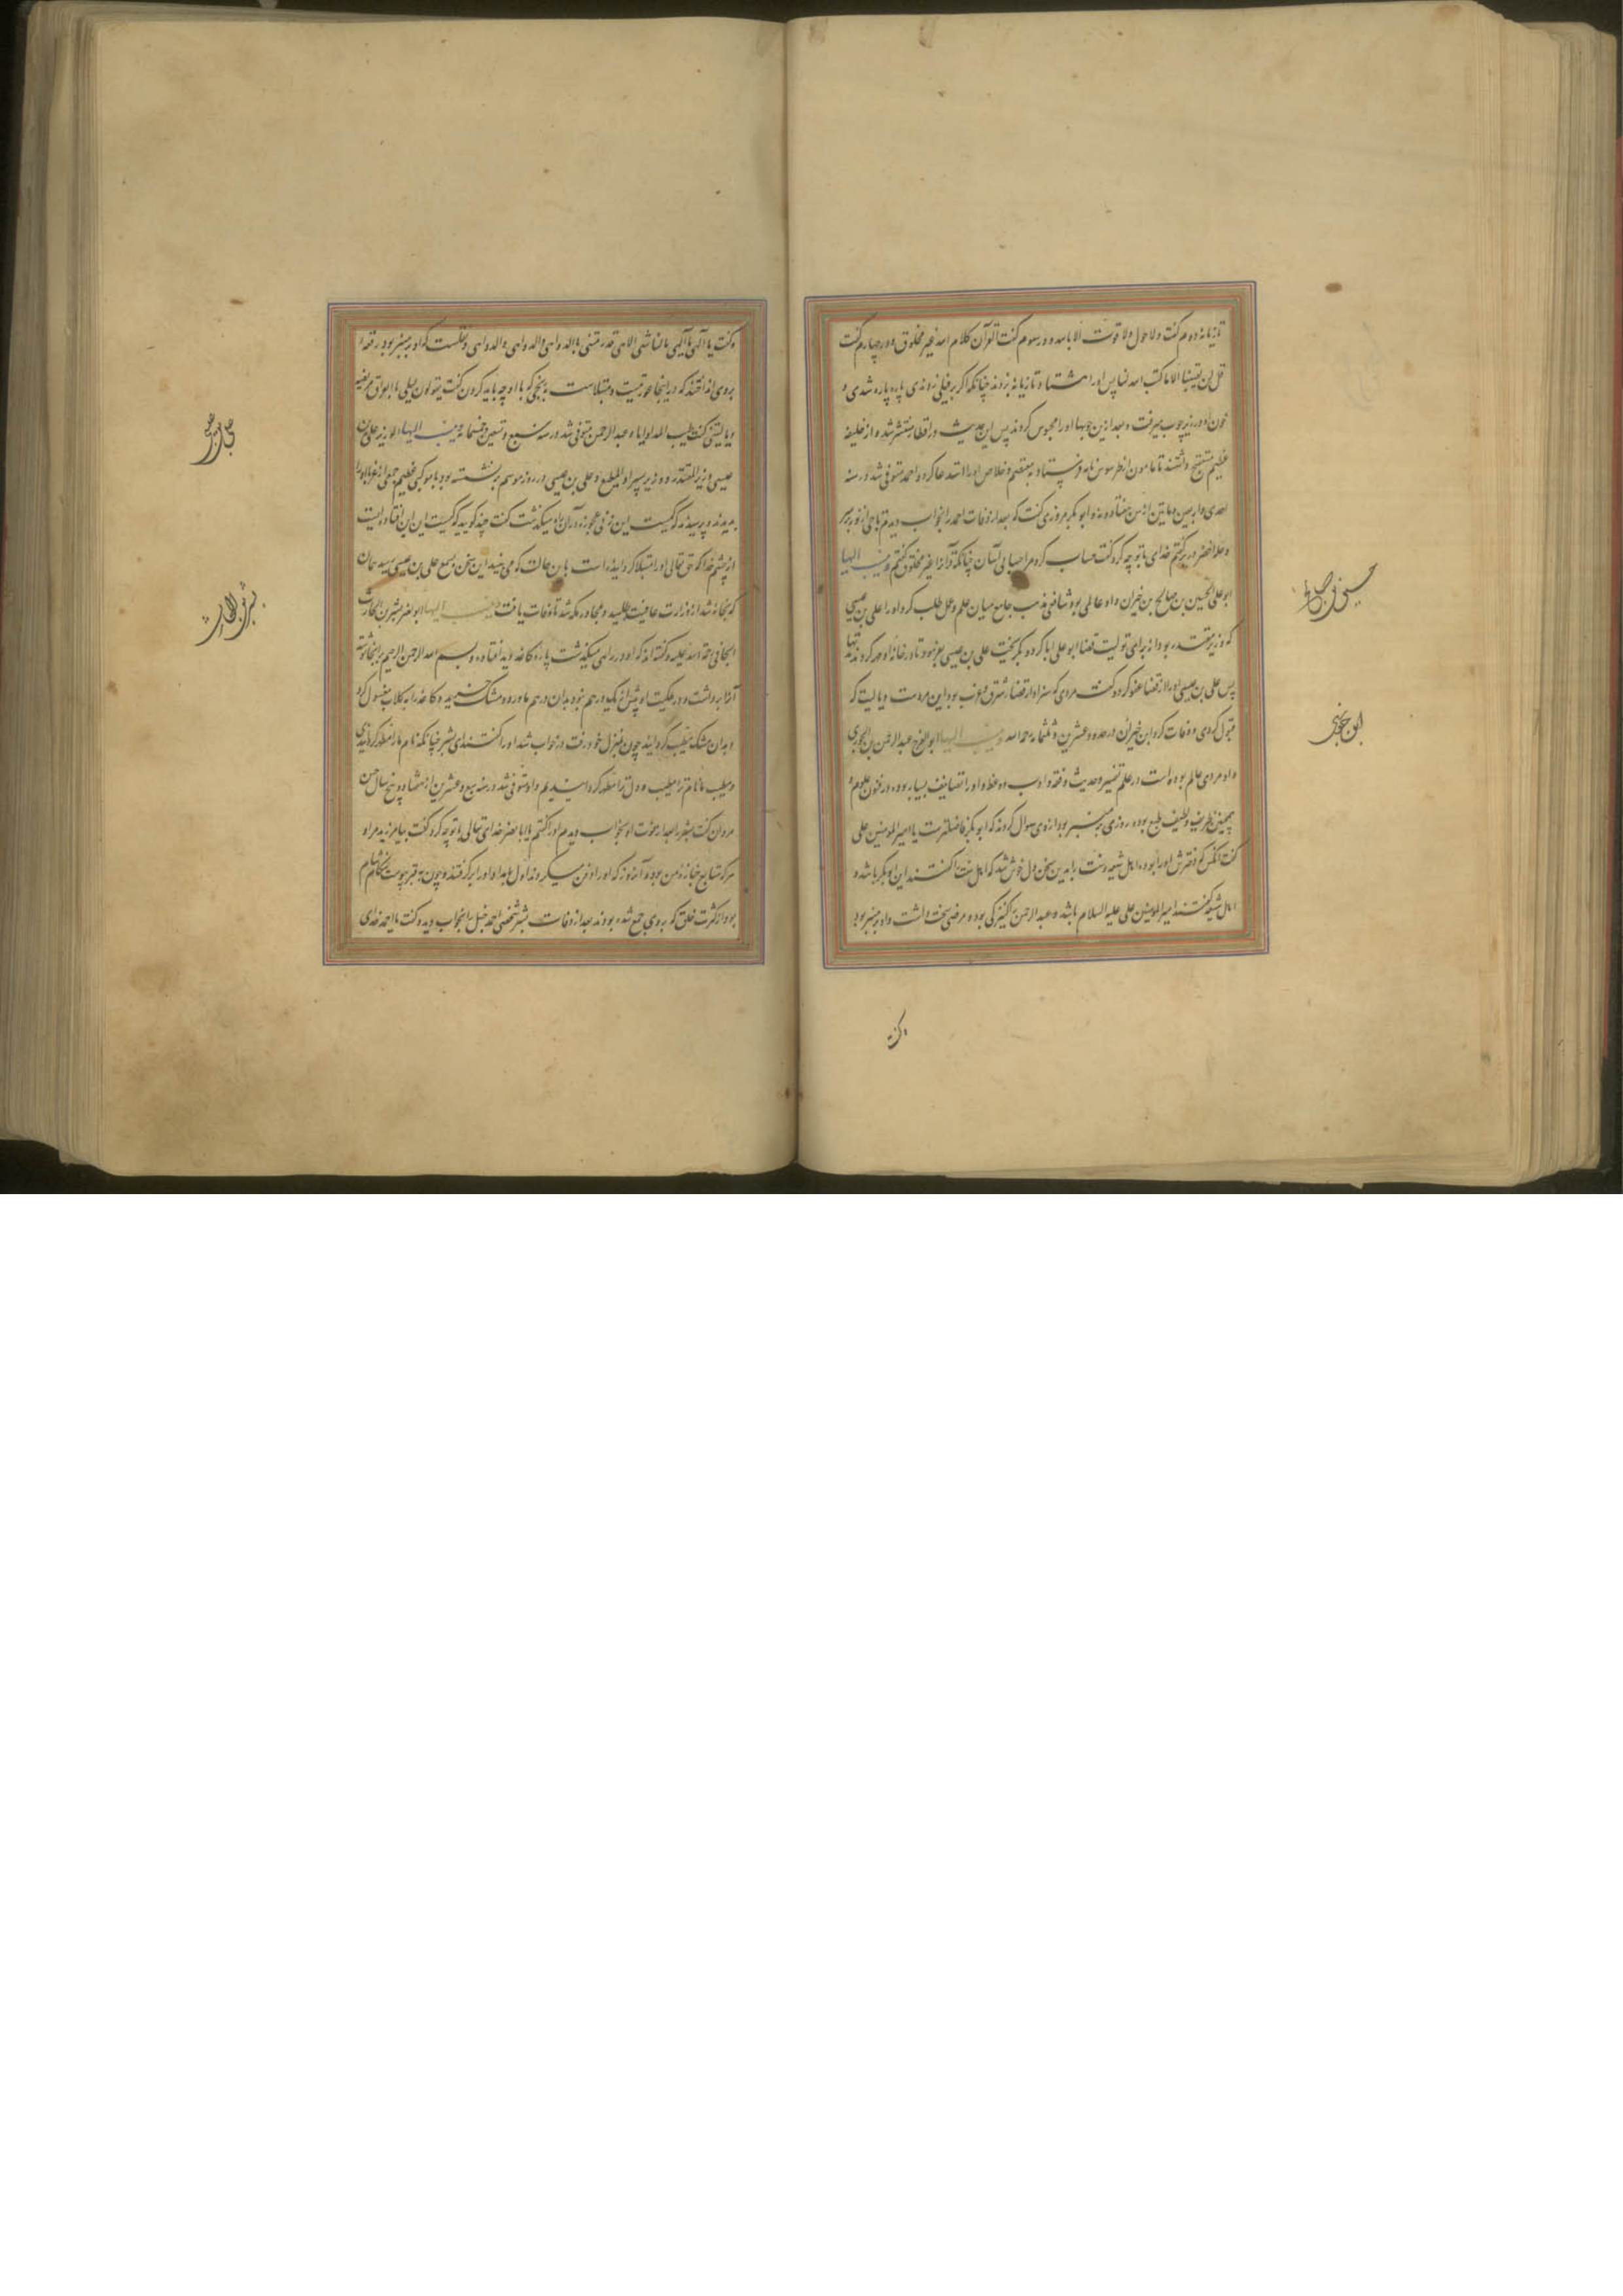 تازیانه دوم گفت ولا حول ولا قوت الا بالله و در سوم گفت القرآن کلام الله غیر مخلوق و در چهارم گفت
قل لن یصیبنا الا ما کتب الله لنا پس او را هشتاد تازیانه بزدند چنانکه اگر بر فیلی زدندی پاره پاره شدی و
خون او در زیر چوب میرفت و بعد ازین چوبها او را محبوس کردند پس این حدیث در اقطار منتشر شد و از خلیفه
عظیم داشتند تا مامون از طرسوس نامه فرستاد به معتصم و خلاص او را استدعا کرد و احمد متوفی شد در سنه
احدی و اربعین و مایتین از سن هفتاد و نه و ابو بکر مروزی گفت که بعد از وفات احمد را بخواب دیدم تاجی از نور بر سر
و حله اخضر در بر گفتم خدای با تو چه کرد گفت حساب کرد مرا حسابی آسان چنانکه قرآن را غیر مخلوق گفتم وینسب الیها
ابو علی الحسین بن صالح بن خیران و او عالمی بود شافعی مذهب جامع میان علم و عمل طلب کرد او را علی بن عیسی
که وزیر مقتدر بود از برای تولیت قضا ابو علی ابا کرد و بگریخت علی بن عیسی بفرمود تا در خانه او مهر کردند
پس علی بن عیسی او را از قضا عفو کرد و گفت مردی که سزاوار قضا شرق و غرب بود این مردست و یا لیت که
قبول کردی و وفات کرد ابن خیران در حدود عشرین و ثلثمایه رحمه الله وینسب الیها ابو الفرج عبد الرحمن بن الجوزی
و او مردی عالم بوده است در علم تفسیر و حدیث و فقه و ادب و وعظ و او را تصانیف بسیار بوده در فنون علوم و
همچنین ظریف و لطیف طبع بوده روزی بر منبر بود از وی سوال کردند که ابو بکر فاضلترست یا امیر المومنین علی
گفت آنکس که دخترش او را بود اهل شیعه و سنت را بدین سخن دل خوش شد که اهل سنت گفتند این ابو بکر باشد و
اهل شیعه گفتند امیر المومنین علی علیه السلام باشد و عبد الرحمن را کنیزکی بود و مرضی سخت داشت و او بر منبر بود
وگفت
حسین بن صالح
ابن جوزی
و گفت یا الهی یا الهی
بروی انداختند که در اینجا عورتیست و مبتلاست بچیزی که با او چه باید کردن گفت یقولون لیلی بالعراق مریضه
و یا لیتنی کنت طبیب المداویا و عبد الرحمن متوفی شد در سنه سبع و تسعین و خمسمایه وینسب الیها الوزیر علی بن
عیسی وزیر المقتدر و وزیر پسر او المطیع و علی بن عیسی در روز موسم بر نشسته بود با موکبی عظیم جمعی از غربا او را
بدیدند و پرسیدند که کیست این زنی عجوزه در آن راه میگذشت گفت چند گویید که کیست این این افتاده ایست
از چشم خدا که حق تعالی او را مبتلا کرد است باین حالت که می بینید این سخن بسمع علی بن عیسی رسید همان
که بخانه شد از وزارت عافیت طلبید و مجاور مکه شد تا وفات یافت وینسب الیها ابو نصر بشر بن الحارث
الحافی رحمة الله علیه و گفته اند که او در راهی میگذشت پاره کاغذ دید افتاده و بسم الله الرحمن الرحیم بر آنجا نوشته
آنرا برداشت و در ملکیت او بیش از یک درهم نبود بدان درهم ماورد و مشک خرید و کاغذ را به گلاب مغسول کرد
و بدان مشک مطیب گردانید چون بمنزل خود رفت در خواب شد او را گفتند ای بشر چنانکه نام ما را مطهر گردانیدی
و مطیب ما نام ترا مطیب و دل ترا مطهر گردانیدیم و او متوفی شد در سنه سبع و عشرین از هفتاد و پنج سال حسن
مروان گفت بشر را بعد از موت او بخواب دیدم او را گفتم یا ابا نصر خدای تعالی با تو چه کرد گفت بیامرزید مرا و
هر که متابع جنازه من بود و آن روز که او را دفن میکردند اول بامداد او را بر گرفتند و چون به قبر پیوست نماز شام
بود از کثرت خلق که بروی جمع شده بودند بعد از وفات بشر شخصی احمد حنبل را بخواب دید و گفت یا احمد خدای
علی بن عیسی
بشر بن الحارث